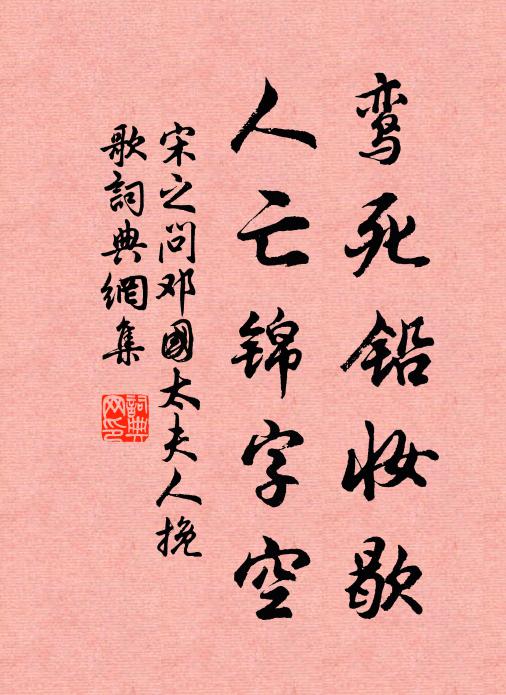 鸾死铅妆歇
人亡锦字空
宋之问邓國太夫人挽
歌詞典網集
詞典
网印